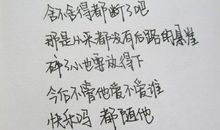 舍不舍得都断了吧
那是从来都没有后路的悬崖
碎了心也要放得下
今后不管他爱不爱谁
快乐吗 都随他